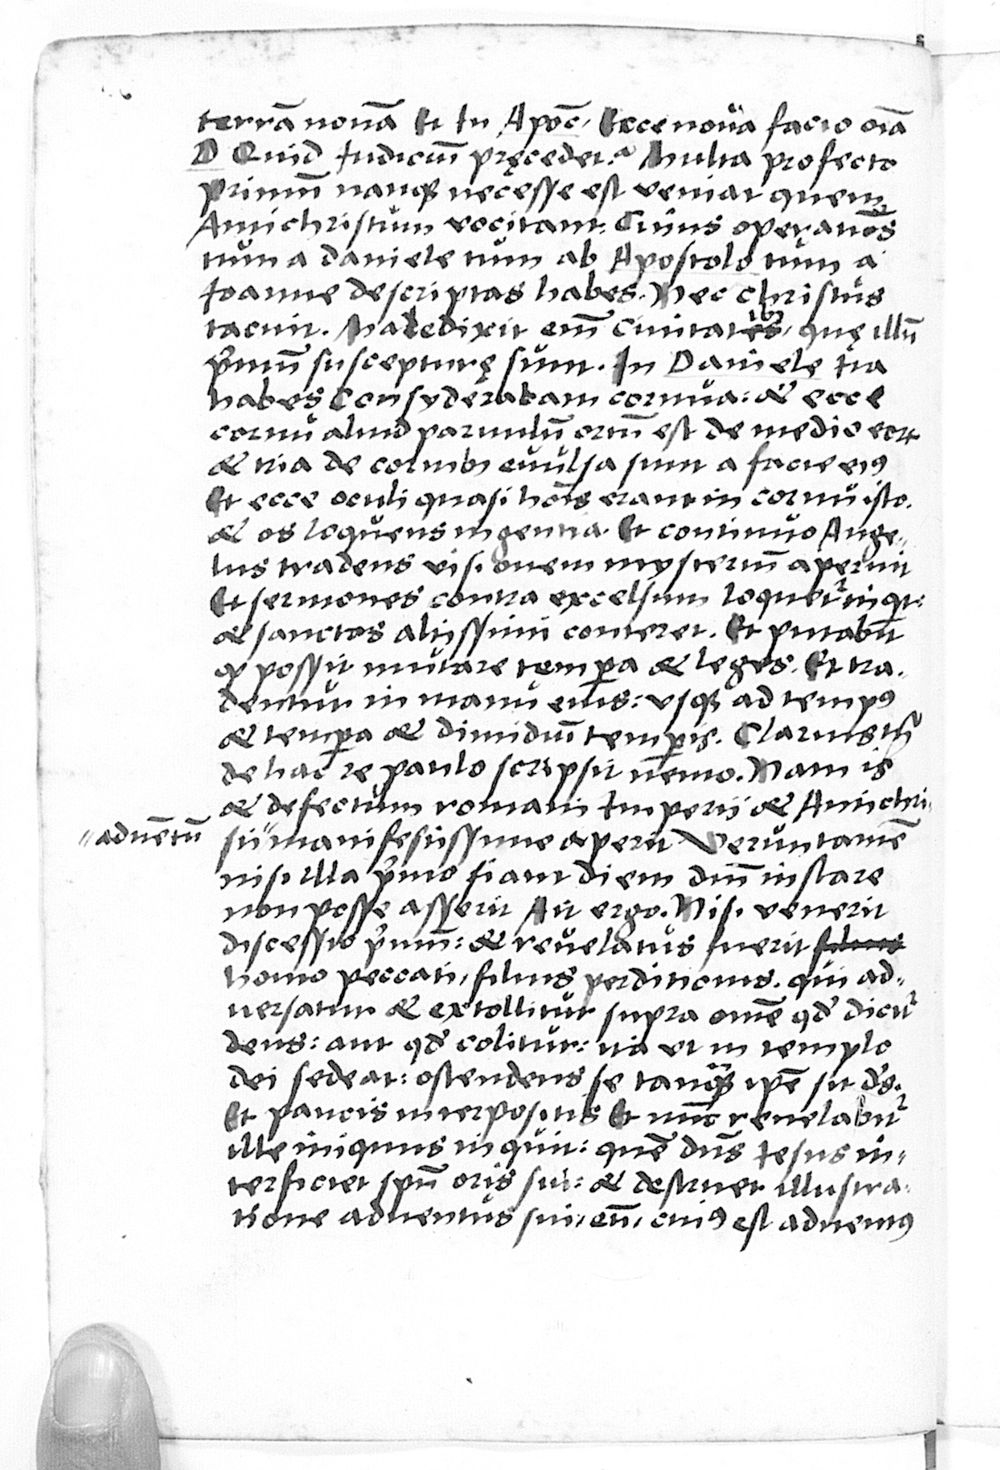 terrā nouā Et In Apoc̄, Ecce noua facio oīa
D Quid Iudiciū pręcedet? Multa profecto
primū nanq̨ necesse est veniat quem
Antichristum vocitant. Cuius operatiōes
tum a daniele tum ab Apostolo tum a
Ioanne descriptas habes. Nec christus
tacuit. Maledixit em̄ ciuitatibꝫ, quę illū
p̄mū suscepturę sunt. In Daniele ita
habes Consyderabam cornua: & ecce
cornu aliud paruulū ortū est de medio eoꝝ
& tria de cornibꝫ euulsa sunt a facie eiꝰ
Et ecce oculi quasi hoīs erant in cornu isto.
& os loquens ingentia. Et continuo Ange„
lus tradens visionem mysteriū aperuit
Et sermones contra excelsum loquet᷑ inqt:
& sanctos altissimi conteret. Et putabit
ꝙ possit mutare tempa & leges. Et tra-
dentur in manu eius: vsqꝫ ad tempꝰ
& tempa & dimidiū tempis. Clarius
de hac re paulo scripsit nemo. Nam is
& defectum romani Imperii & Antichri-
„aduētū
sti„ manifestissime aperit Veruntamē
nisi illa p̄mo fiant diem dnī instare
non posse asserit Ait ergo. Nisi venerit
discessio p̄mū: & reuelatus fuerit filius
homo peccati, filius perditionis. qui ad„
uersatur & extollitur supra omē qd̄ dicit᷑
deus: aut qd̄ colitur: ita vt in templo
dei sedeat: ostendens se tanqꝫ ipē sit ds̄.
Et paucis interpositis Et nūc reuelabit᷑
ille iniquus inquit: quē dn̄s Iesus in„
terficiet spū oris sui: & destruet illustra-
tione aduentus sui, eū, cuiꝰ est aduentꝰ